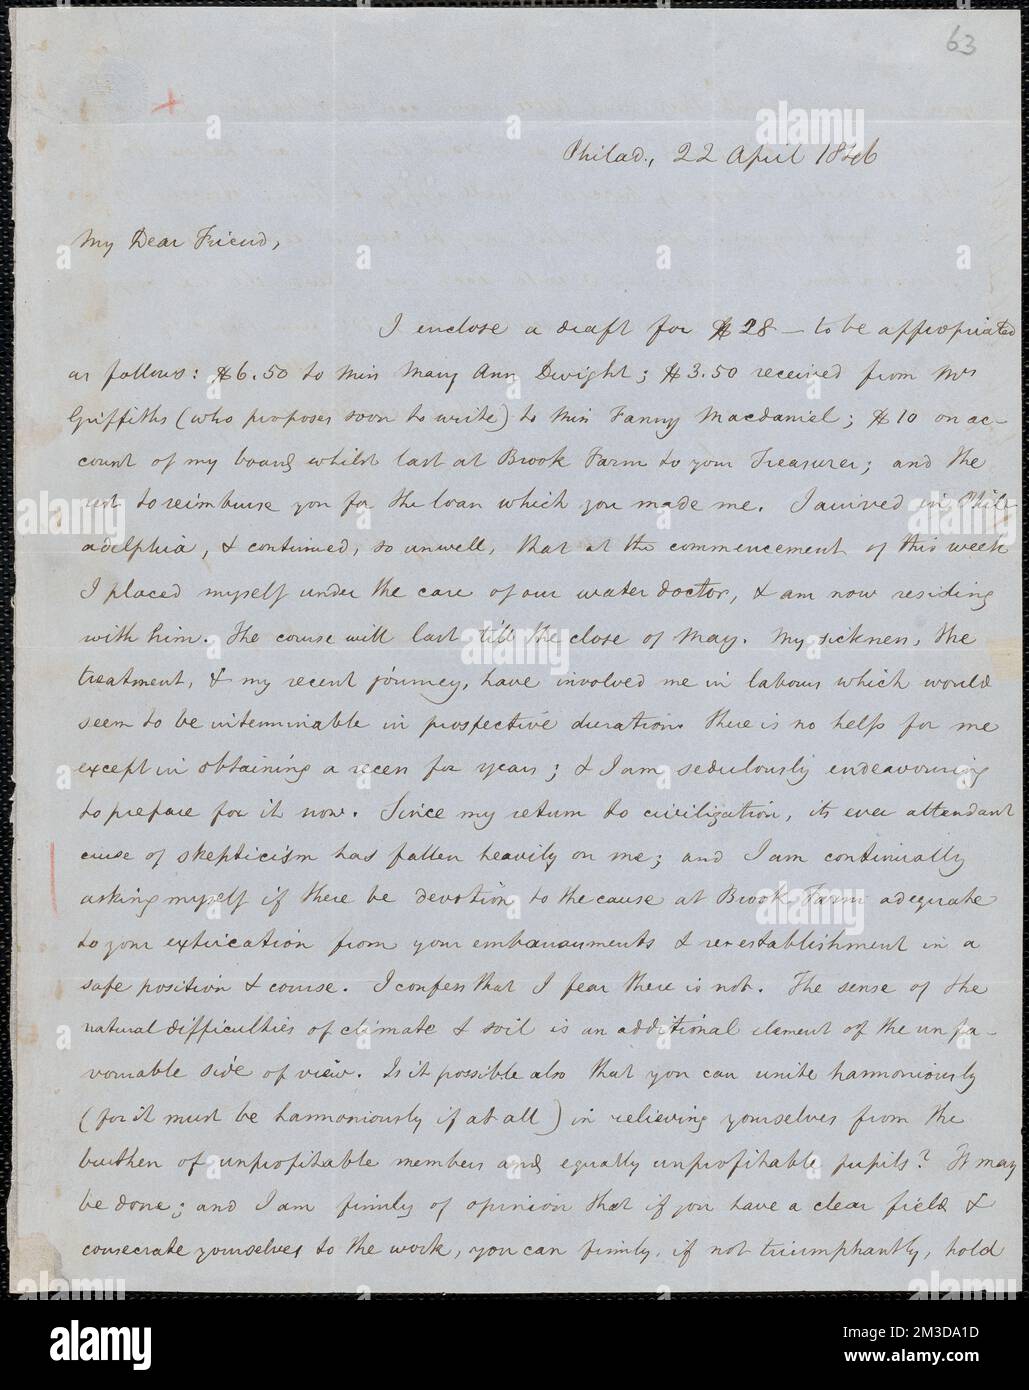 63
Philad., 22 April 1846
My Dear Friend,
I enclose a draft for $28 — to be appropriated
as follows: $6.50 to Miss Mary Ann Dwight; $3.50 received from Mrs
Griffiths (who proposes soon to write) to Miss Fanny Macdaniel; $10 on ac-
count of my board whilst last at Brook Farm to your Treasurer; and the
rest to reimburse you for the loan which you made me. I arrived in Phil-
adelphia, & continued, so unwell, that at the commencement of this week
I placed myself under the care of our water doctor, & am now residing
with him. The course will last till the close of May. My sickness, the
treatment, & my recent journey, have involved me in labours which would
seem to be interminable in prospective duration. There is no help for me
except in obtaining a recess for years; & I am sedulously endeavouring
to prepare for it now. Since my return to civilization, its ever attendant
curse of skepticism has fallen heavily on me; and I am continually
asking myself if there be devotion to the cause at Brook Farm adequate
to your extrication from your embarrassments & re-establishment in a
safe position & course. I confess that I fear there is not. The sense of the
natural difficulties of climate & soil is an additional element of the unfa-
vourable side of view. Is it possible also that you can unite harmoniously
(for it must be harmoniously if at all) in relieving yourselves from the
burthen of unprofitable members and equally unprofitable pupils? It may
be done; and I am firmly of opinion that if you have a clear field &
consecrate yourselves to the work, you can firmly, if not triumphantly, hold
alamy
Image ID: 2M3DA1D
www.alamy.com